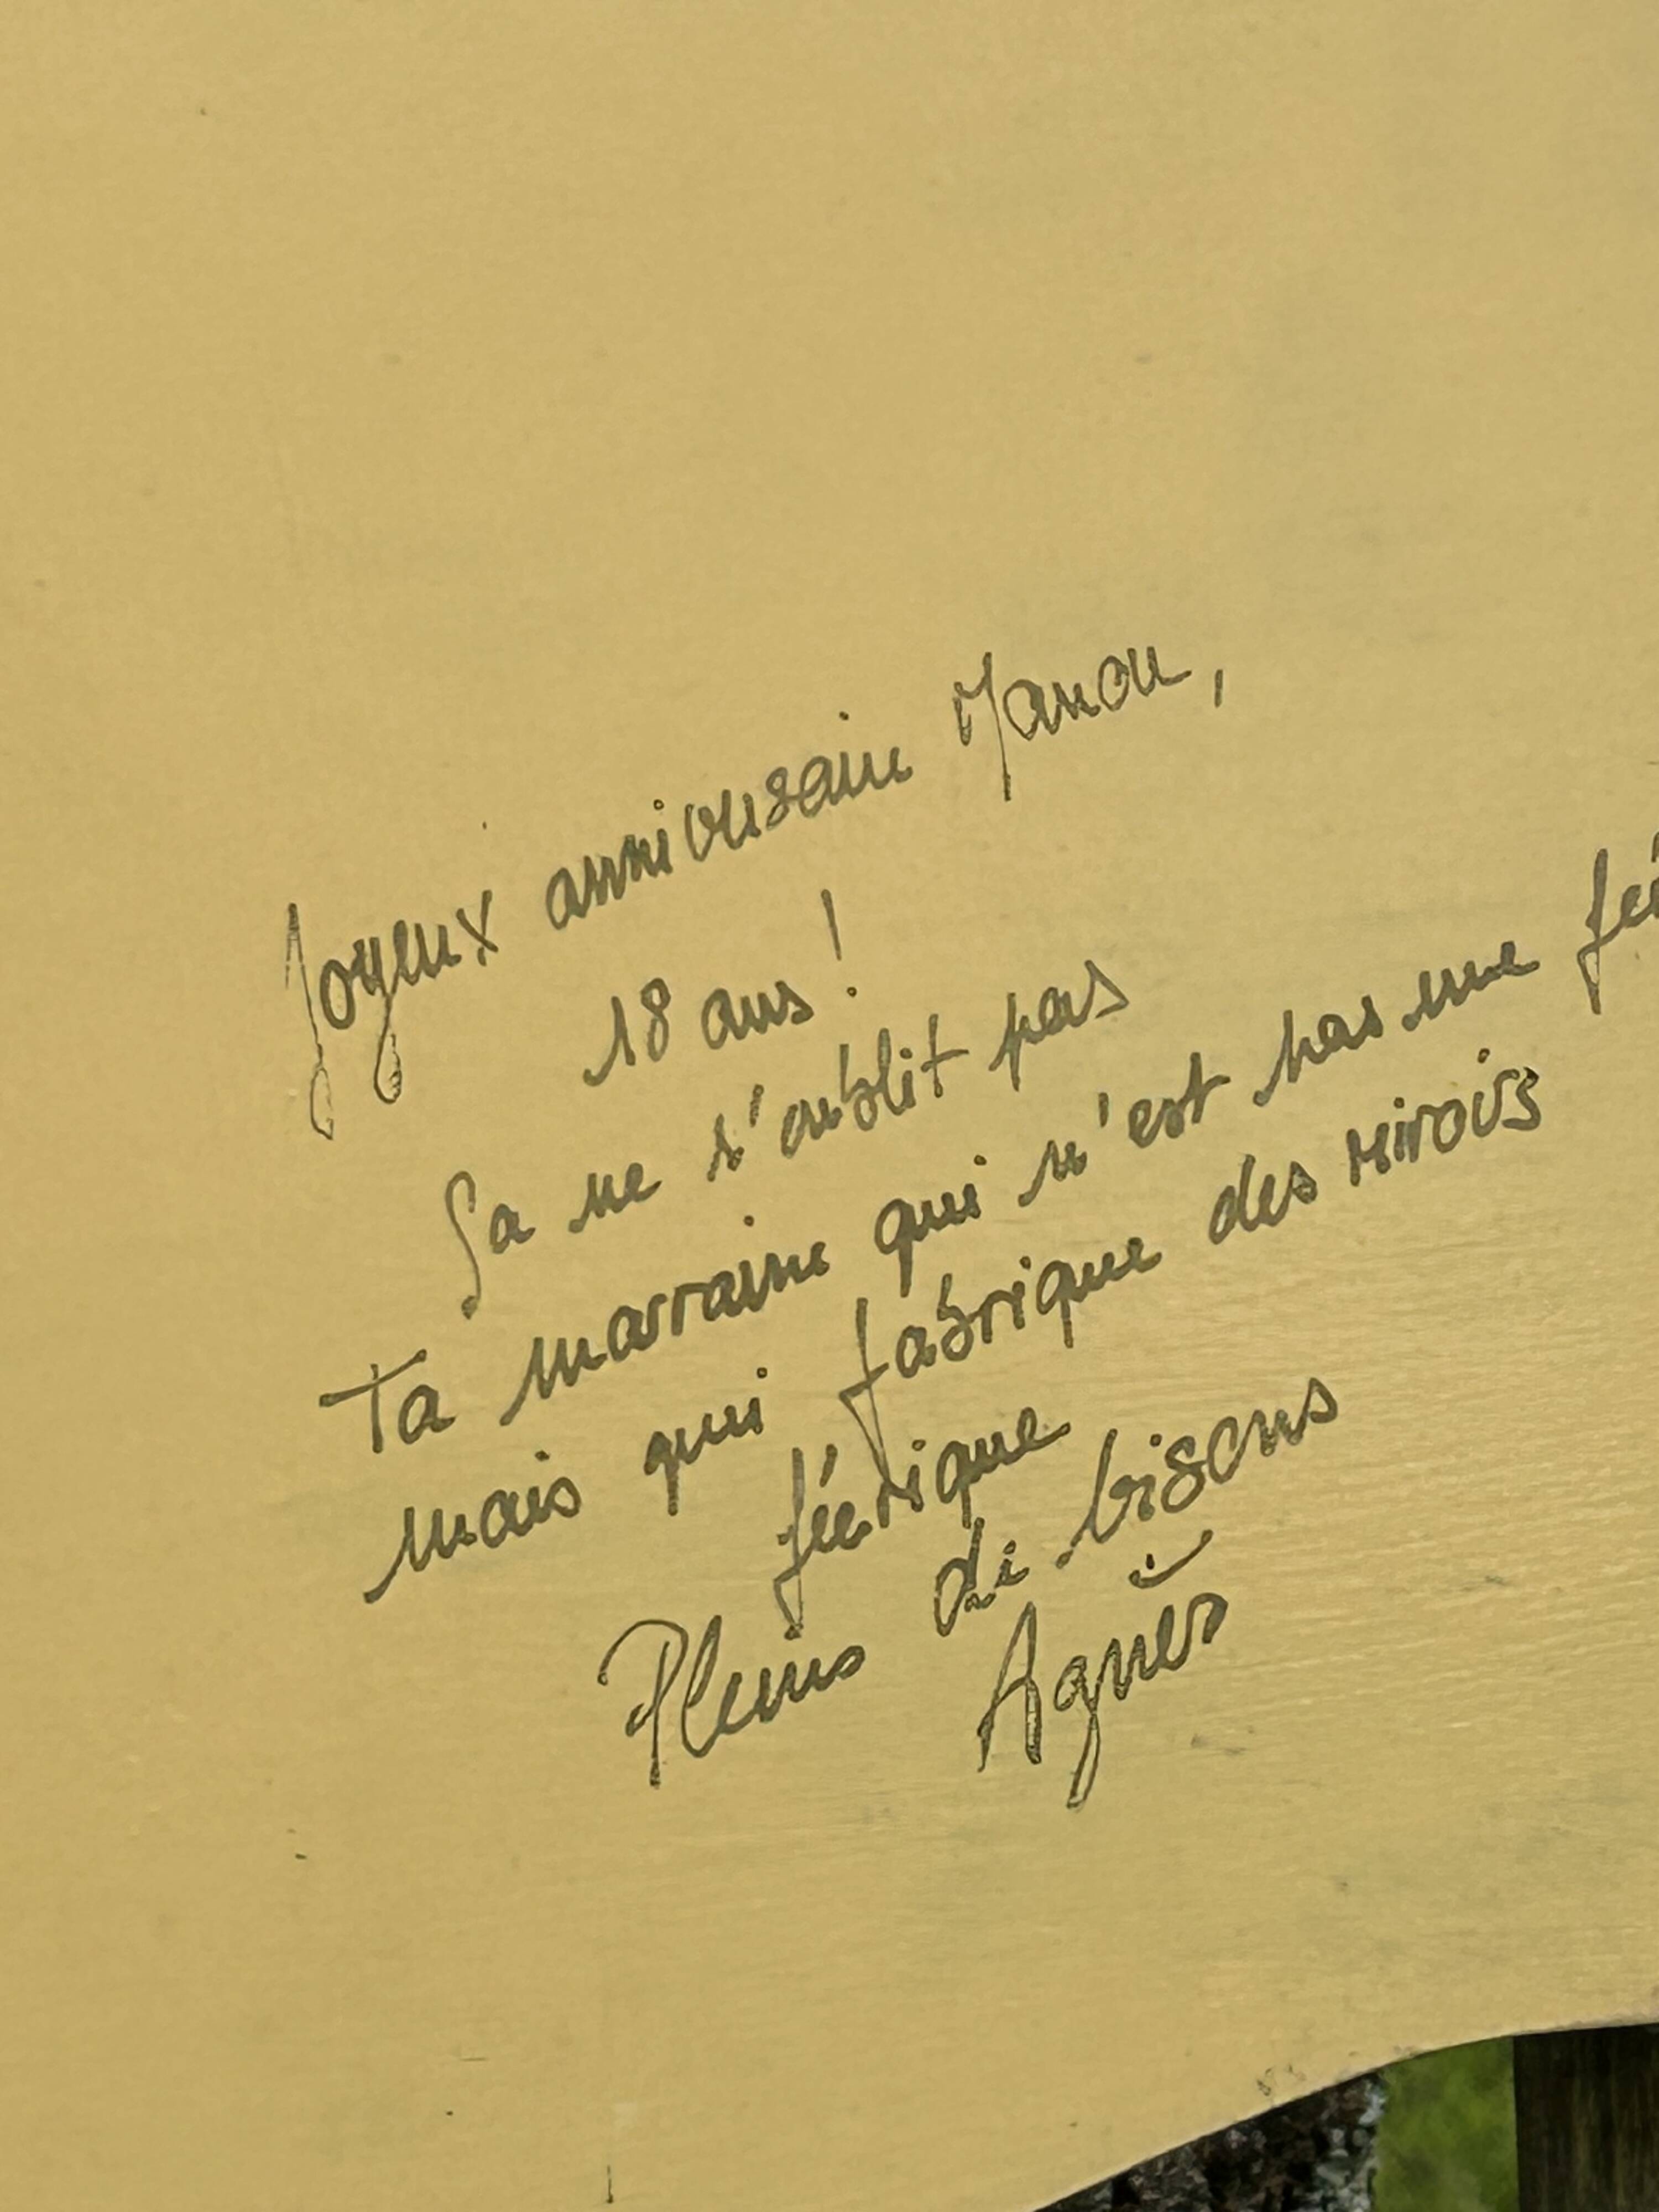 Joyeux anniversaire Manou,
18 ans !
Ça ne s'oublit pas
Ta marraine qui n'est pas une fé
mais qui fabrique des miroirs
féerique
Pleins de bisous
Agnès